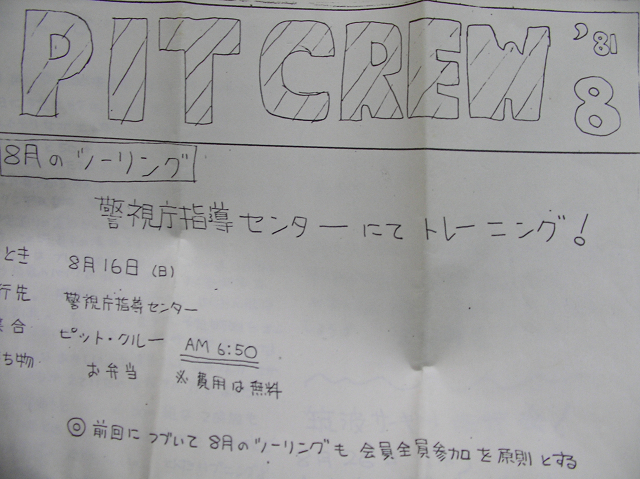 PIT CREW '81 8
8月のツーリング
警視庁指導センターにてトレーニング!
とき 8月16日(日)
行先 警視庁指導センター
集合 ピット・クルー AM 6:50
ち物 お弁当 ※費用は無料
◎前回につづいて8月のツーリングも会員全員参加を原則とする